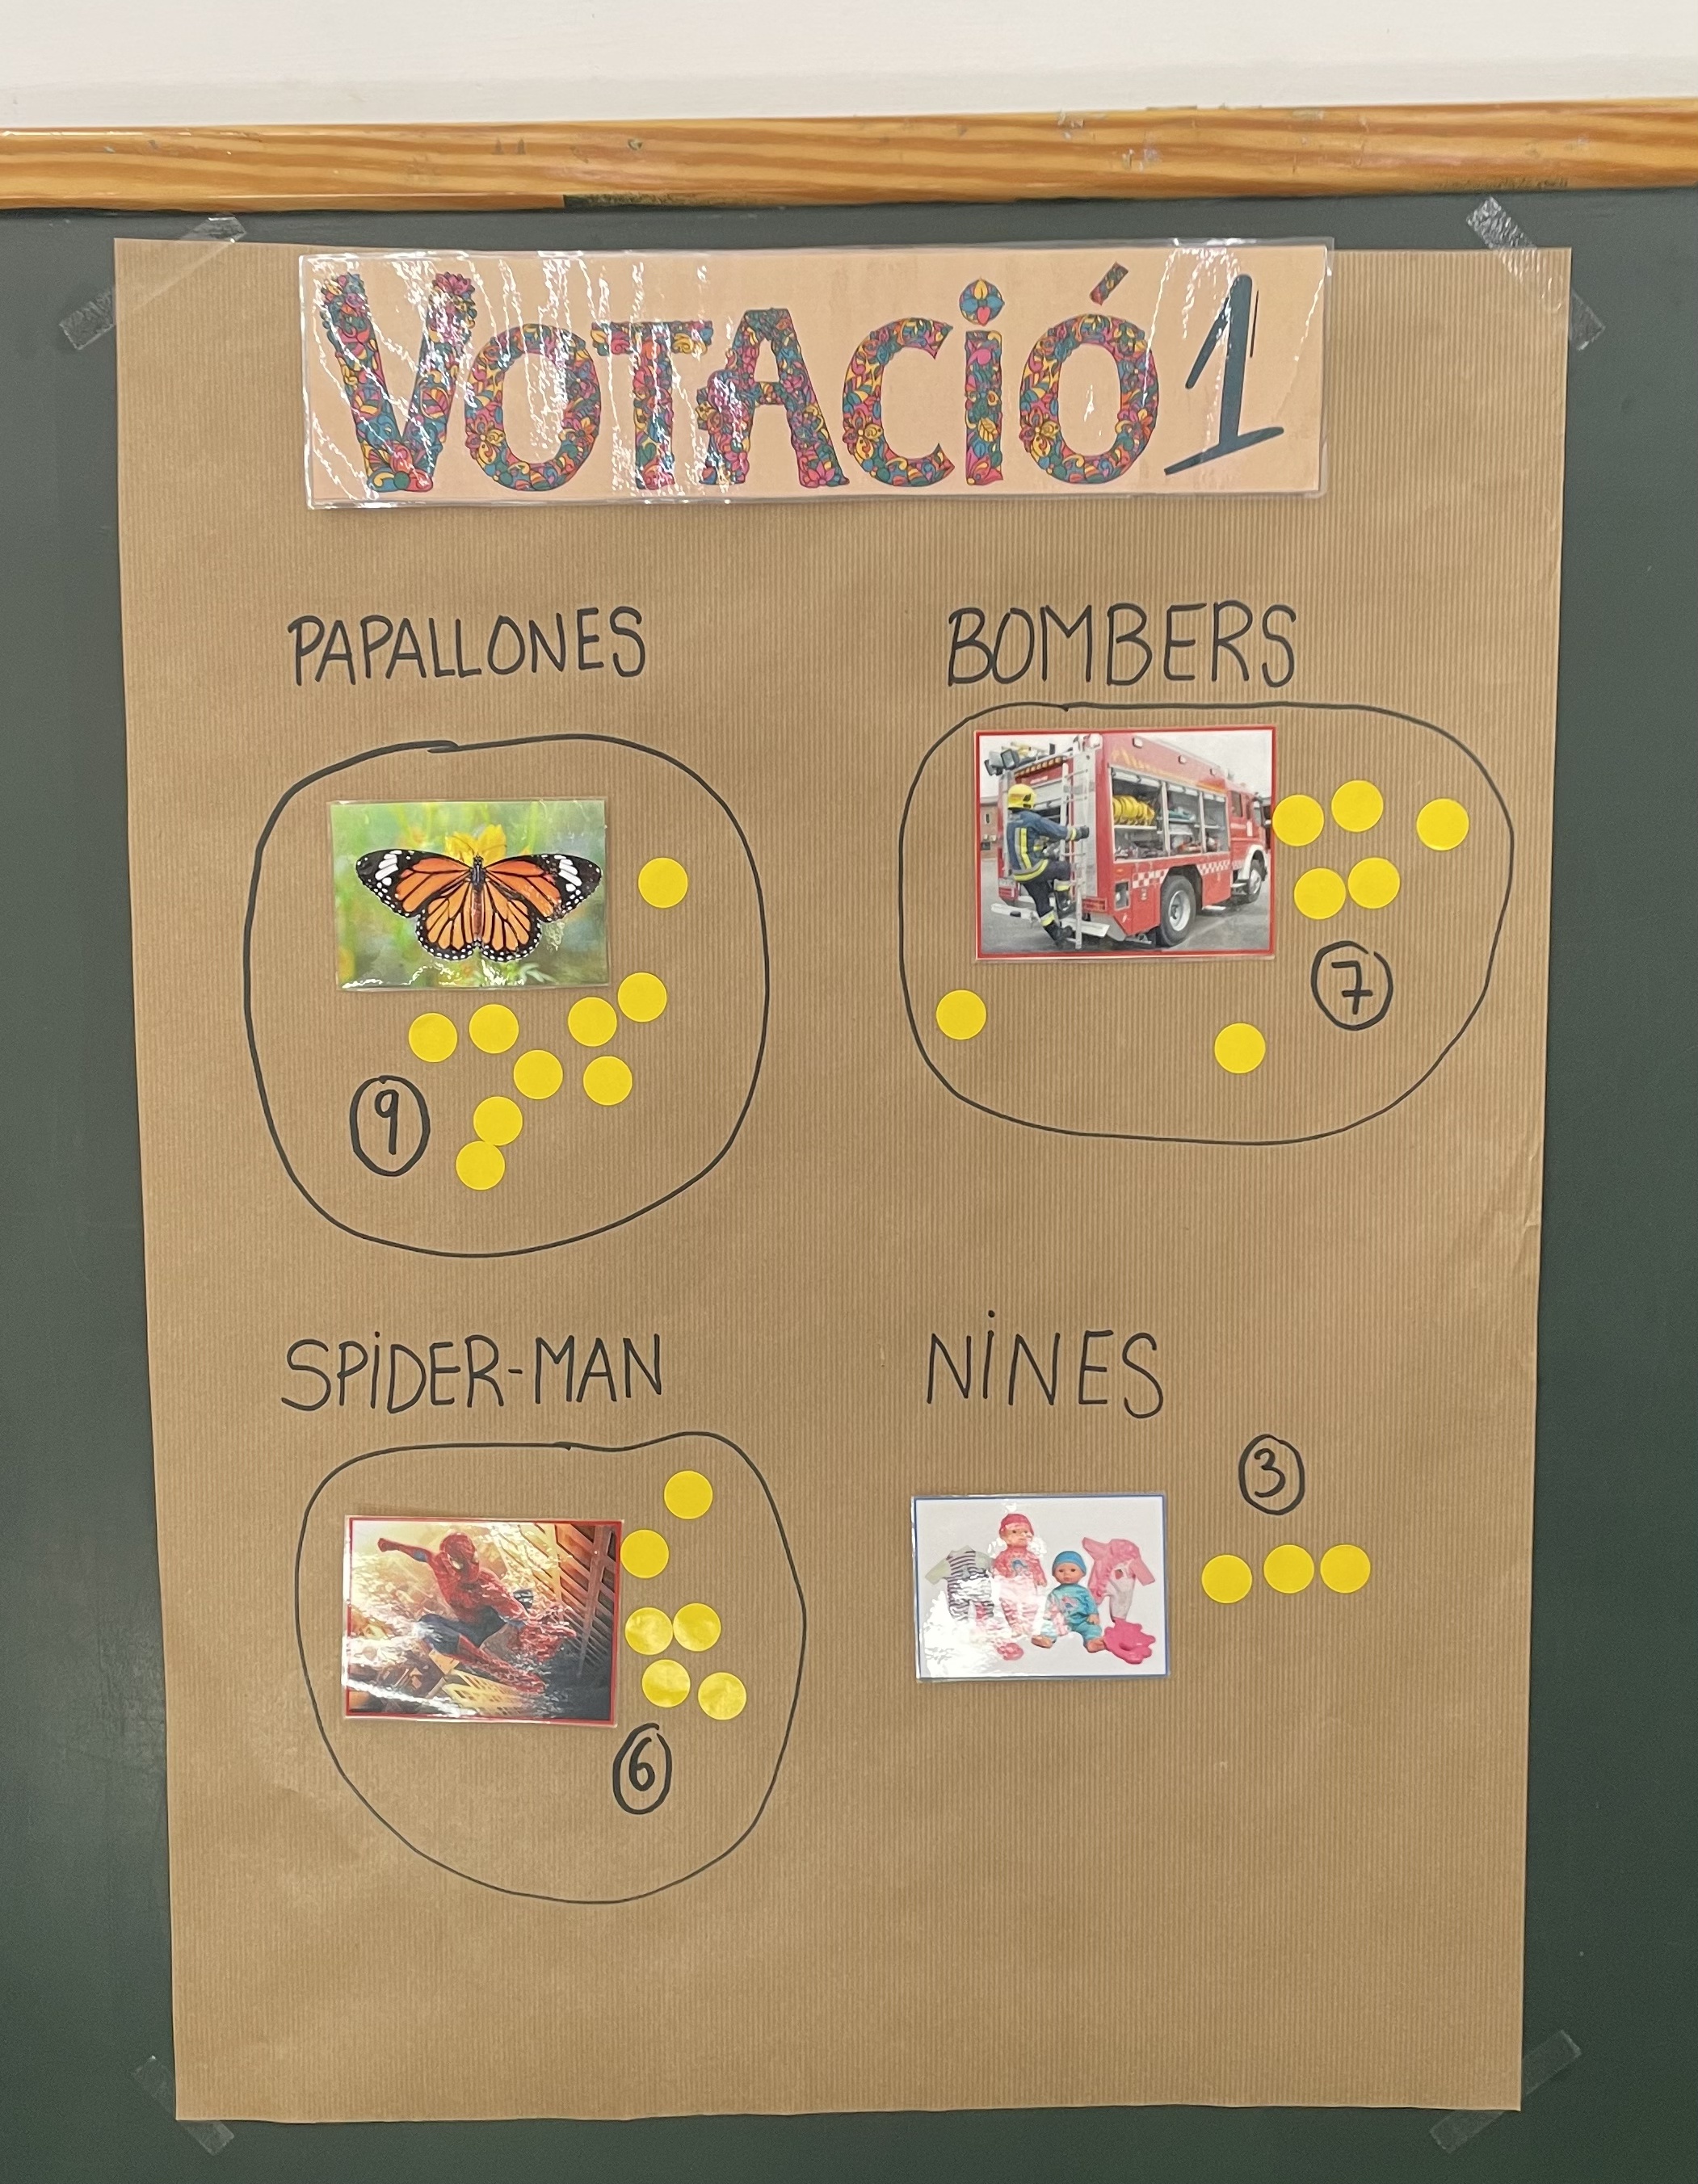 VOTACIÓ 1
PAPALLONES
9
BOMBERS
7
SPIDER-MAN
6
NINES
3